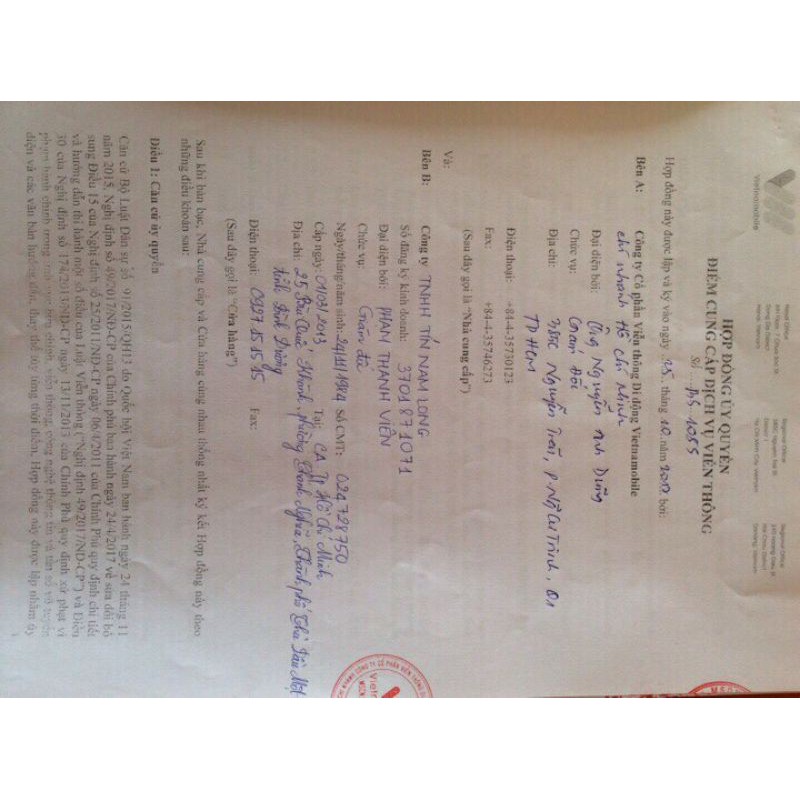 Vietnamobile
Head Office
Regional Office
Regional Office
HỢP ĐỒNG ỦY QUYỀN
ĐIỂM CUNG CẤP DỊCH VỤ VIỄN THÔNG
Số: BS 1055
Hợp đồng này được lập và ký vào ngày 25 tháng 10 năm 2017 bởi:
Bên A: Công ty Cổ phần Viễn thông Di động Vietnamobile
chi nhánh Hồ Chí Minh
Đại diện bởi: Ông Nguyễn Anh Dũng
Chức vụ: Giám Đốc
Địa chỉ: Nguyễn Trãi, P. Ng Cư Trinh, Q1
TP HCM
Điện thoại: +84-4-35730123
Fax: +84-4-35746273
(Sau đây gọi là "Nhà cung cấp")
Và:
Bên B: Công ty TNHH TÍN NAM LONG
Số đăng ký kinh doanh: 3701871071
Đại diện bởi: PHẠM THANH VIÊN
Chức vụ: Giám đốc
Ngày/tháng/năm sinh: 24/11/1984 Số CMT: 024728750
Cấp ngày: 01/03/2013 Tại: CA TP Hồ Chí Minh
Địa chỉ: 25 Bùi Quốc Khánh, phường Chánh Nghĩa, Thành phố Thủ Dầu Một
tỉnh Bình Dương
Điện thoại: 0927 15 15 15 Fax:
(Sau đây gọi là "Cửa hàng")
Sau khi bàn bạc, Nhà cung cấp và Cửa hàng cùng nhau thống nhất ký kết Hợp đồng này theo
những điều khoản sau:
Điều 1: Căn cứ ủy quyền
Căn cứ Bộ Luật Dân sự số 91/2015/QH13 do Quốc hội Việt Nam ban hành ngày 24 tháng 11
năm 2015, Nghị định số 49/2017/NĐ-CP của Chính phủ ban hành ngày 24/4/2017 về sửa đổi bổ
sung Điều 15 của Nghị định số 25/2011/NĐ-CP ngày 06/4/2011 của Chính Phủ quy định chi tiết
và hướng dẫn thi hành một số điều của Luật Viễn thông ("Nghị định 49/2017/NĐ-CP") và Điều
30 của Nghị định số 174/2013/NĐ-CP ngày 13/11/2013 của Chính Phủ quy định xử phạt vi
phạm hành chính trong lĩnh vực bưu chính, viễn thông, công nghệ thông tin và tần số vô tuyến
điện và các văn bản hướng dẫn, thay thế tùy từng thời điểm, Hợp đồng này được lập nhằm ủy